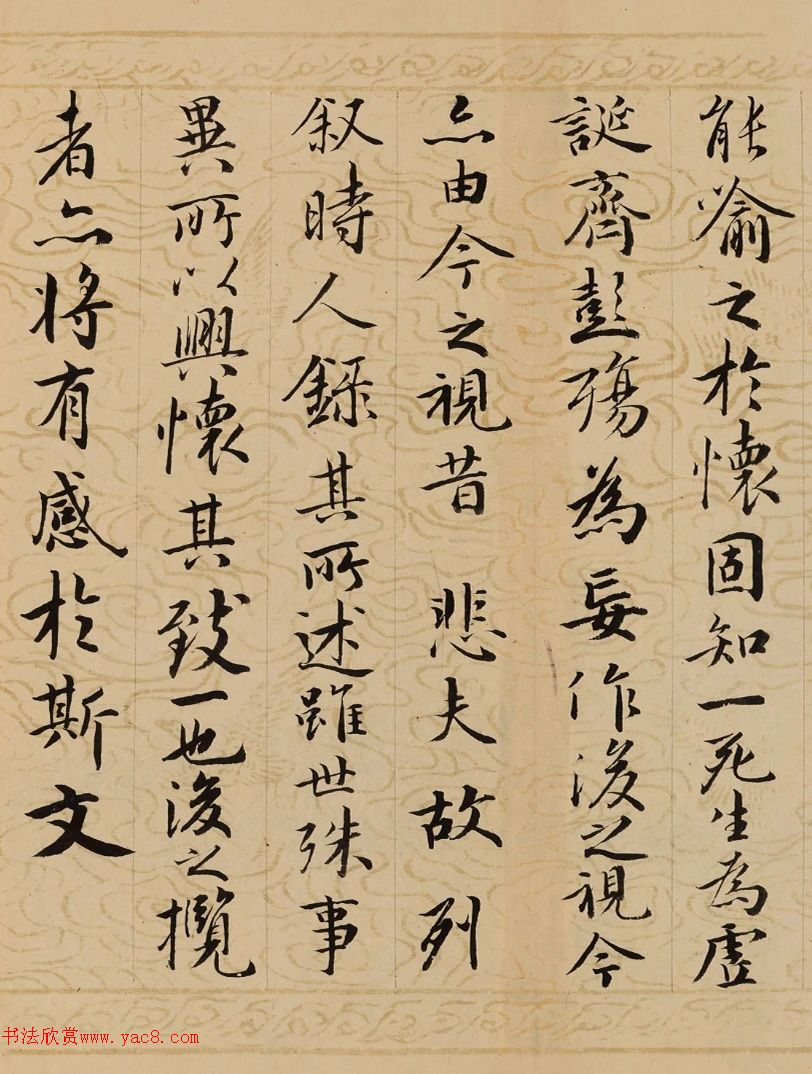 能喻之於懷固知一死生為虛
誕齊彭殤為妄作後之視今
亦由今之視昔悲夫故列
叙時人錄其所述雖世殊事
異所以興懷其致一也後之攬
者亦將有感於斯文
书法欣赏www.yac8.com